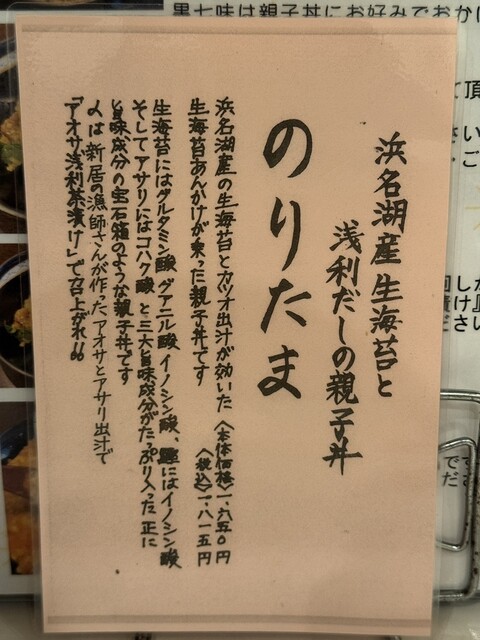 黒七味は親子丼にお好みでおか
浜名湖産 生海苔と
浅利だしの親子丼
のりたま
浜名湖産の生海苔とカツオ出汁が効いた〈本体価格〉一、六五〇円
生海苔あんかけが乗った親子丼です 〈税込〉一、八一五円
生海苔にはグルタミン酸 グアニル酸 イノシン酸、鶏にはイノシン酸
そしてアサリにはコハク酸 と三大旨味成分がたっぷり入った 正に
旨味成分の宝石箱のような親子丼です
〆は 新居の漁師さんが作ったアオサとアサリ出汁で
「アオサ浅利茶漬け」で召上がれ!!